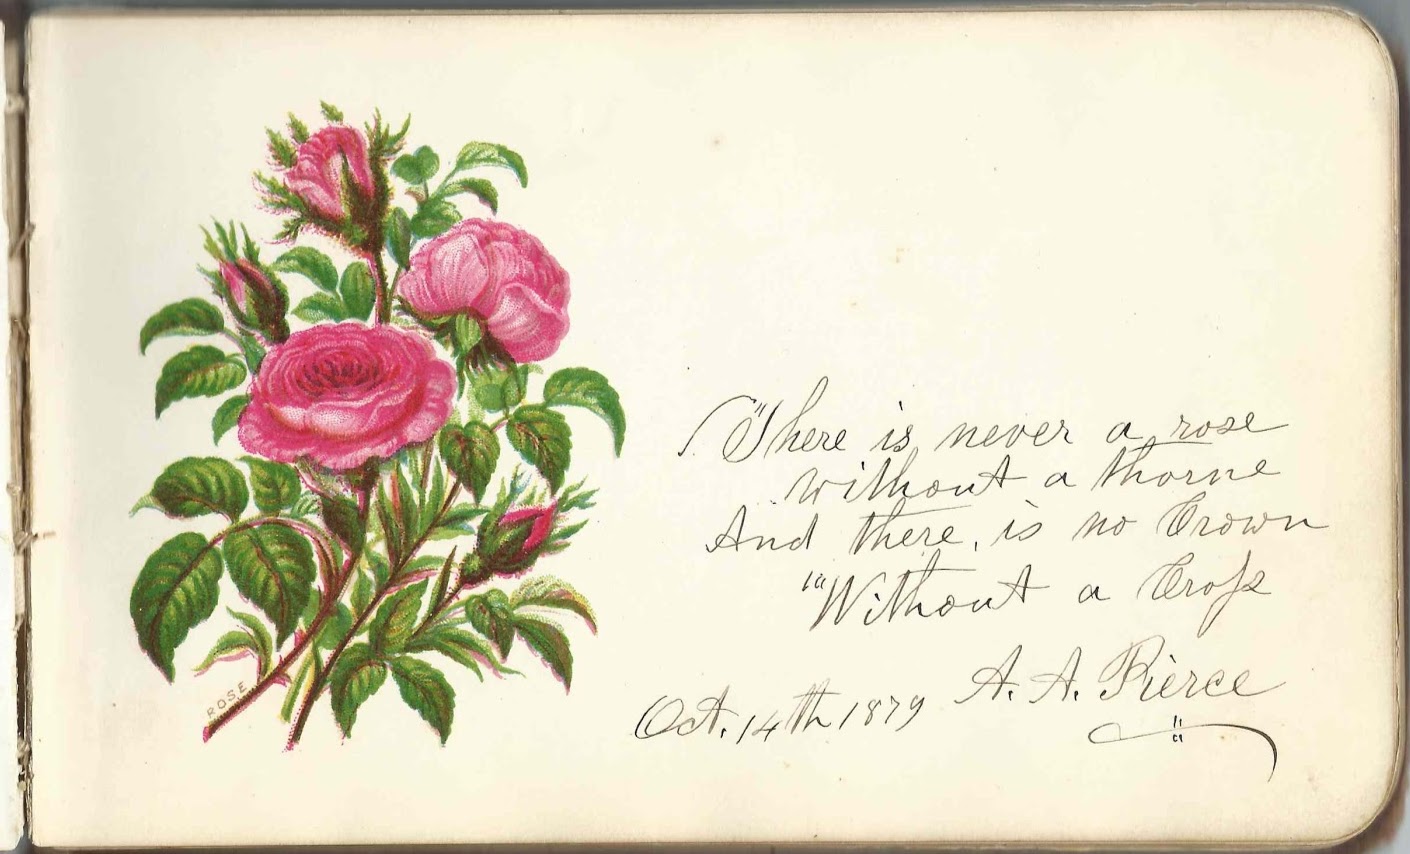 "There is never a rose
without a thorne
And there, is no Crown
"Without a Croſs
A. A. Pierce
Oct. 14th 1879
ROSE